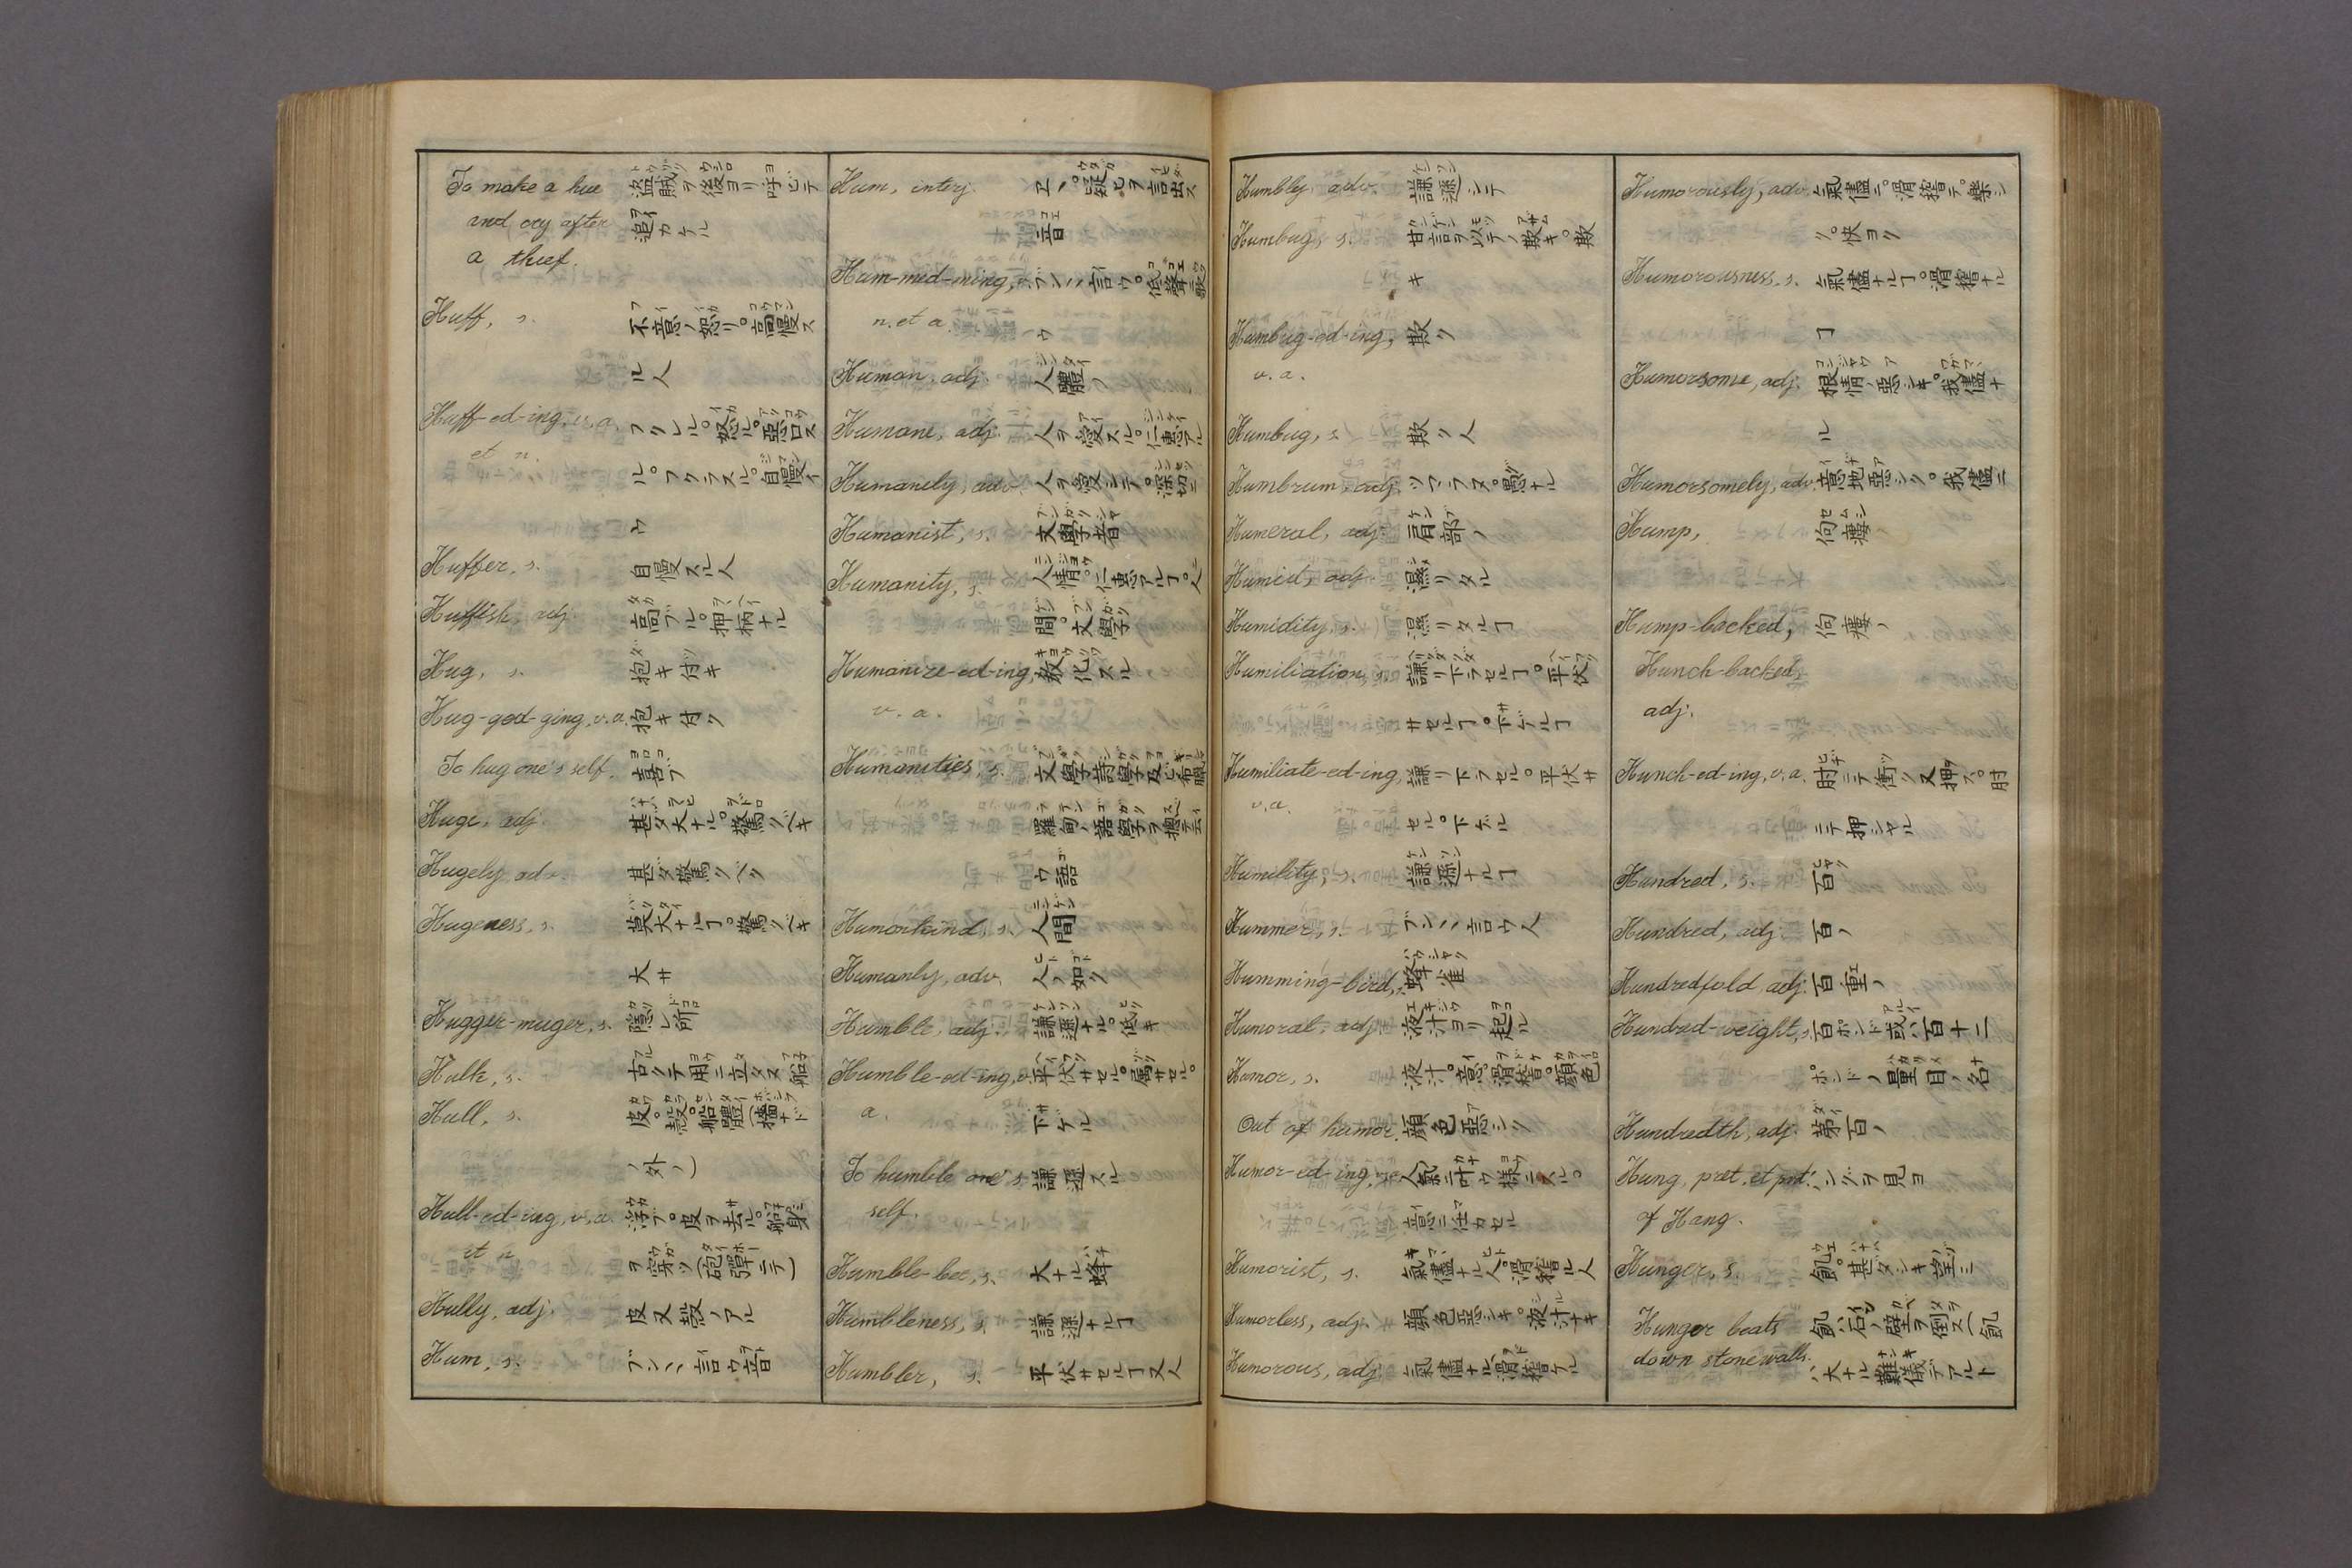 To make a hue 盗賊ヲ後ヨリ呼ビテ
and cry after 追カケル
a thief.
Huff, s. 不意ノ怒リ。高慢ス
ル人
Huff-ed-ing, v. a. フクレル。怒ル。惡口ス
et n. ル。フクラスル。自慢イ
ウ
Huffer, s. 自慢スル人
Huffish, adj. 高ブル。押柄ナル
Hug, s. 抱キ付キ
Hug-ged-ging, v.a. 抱キ付ク
To hug one's self. 喜ブ
Huge, adj. 甚タ大ナル。驚クベキ
Hugely, adv. 甚タ驚クベク
Hugeness, s. 莫大ナルヿ。驚クベキ
大サ
Hugger-muger, s. 隱レ所
Hulk, s. 古クテ用ニ立タヌ船
Hull, s. 皮。殼。船體(檣ナド
ノ外ノ)
Hull-ed-ing, v. a. 浮ブ。皮ヲ去ル。船身
et n. ヲ穿ツ(砲彈ニテ)
Hully, adj. 皮又殼ノアル
Hum, s. ブンヽヽ言ウ音
Hum, interj. ヱヽ。疑ヒヲ言出ス
音
Hum-med-ming, ブンヽヽ言ウ。低聲歌
n. et a. ウ
Human, adj. 人體ノ
Humane, adj. 人ヲ愛スル。仁惠アル
Humanely, adv. 人ヲ愛シテ。深切ニ
Humanist, s. 文學者
Humanity, s. 人情。仁惠アルヿ。人
間。文學
Humanize-ed-ing, 教化スル
v. a.
Humanities, s. 文學詩學及ビ希臘
羅甸ノ語學ヲ摠テ云
ウ語
Humankind, s. 人間
Humanly, adv. 人ノ如ク
Humble, adj. 謙遜ナル。低キ
Humble-ed-ing, v. 平伏サセル。屬サセル。
a. 下ゲル
To humble one's 謙遜スル
self.
Humble-bee, s. 大ナル蜂
Humbleness, s. 謙遜ナルヿ
Humbler, s. 平伏サセルヿ又人
Humbly, adv. 謙遜シテ
Humbug, s. 甘言ヲ以テノ欺キ。欺
キ
Humbug-ed-ing, 欺ク
v. a.
Humbug, s. 欺ク人
Humbrum, adj. ツマラヌ。愚ナル
Humeral, adj. 肩部ノ
Humid, adj. 濕リタル
Humidity, s. 濕リタルヿ
Humiliation, s. 謙リ下ラセルヿ。平伏
サセルヿ。下ゲルヿ
Humiliate-ed-ing, 謙リ下ラセル。平伏サ
v.a. セル。下ゲル
Humility, s. 謙遜ナルヿ
Hummer, s. ブンヽヽ言ウ人
Humming-bird, s. 蜂雀
Humoral, adj. 液汁ヨリ起ル
Humor, s. 液汁。意。滑稽。顔色
Out of humor. 顔色惡シク
Humor-ed-ing, v.a. 人氣ニ叶ウ様ニスル。
意ニ任カセル
Humorist, s. 氣儘ナル人。滑稽ル人
Humorless, adj. 顔色惡シキ。液汁ナキ
Humorous, adj. 氣儘ナル。滑稽ケル
Humorously, adv. 氣儘ニ。滑稽テ。樂シ
ク。快ヨク
Humorousness, s. 氣儘ナルヿ。滑稽ナル
ヿ
Humorsome, adj. 根情ノ惡シキ。我儘ナ
ル
Humorsomely, adv. 意地惡シク。我儘ニ
Hump, 佝瘻
Hump-backed, 佝瘻ノ
Hunch-backed,
adj.
Hunch-ed-ing, v. a. 肘ニテ衝ク又押ス。肘
ニテ押シヤル
Hundred, s. 百
Hundred, adj. 百ノ
Hundredfold, adj. 百重ノ
Hundred-weight, s. 百ポンド或ハ百十二
ポンドノ量目ノ名
Hundredth, adj. 第百ノ
Hung, præt. et prt. ハングヲ見ヨ
of Hang.
Hunger, s. 飢。甚ダシキ望ミ
Hunger beats 飢ハ石ノ壁ヲ倒ス(飢
down stone walls. ハ大ナル難儀デアルト